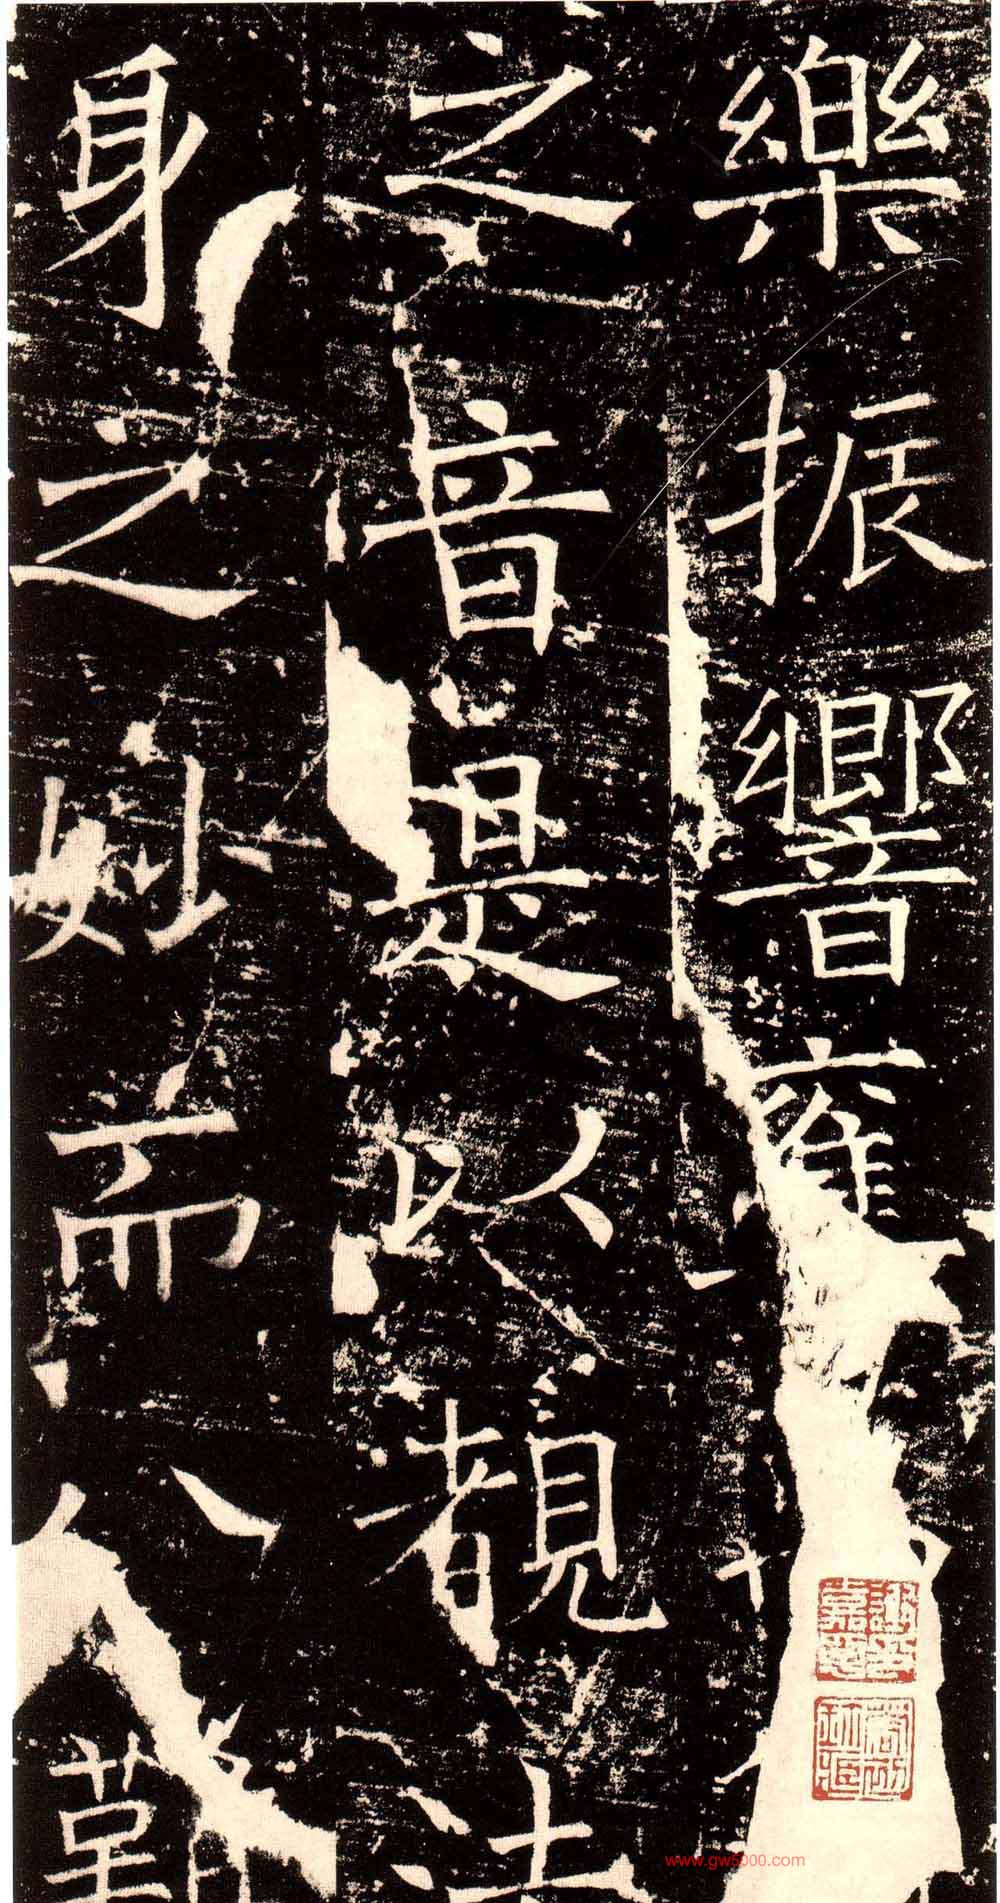 樂振響雍
之音是以覩法
身之妙而勤
www.gw5000.com